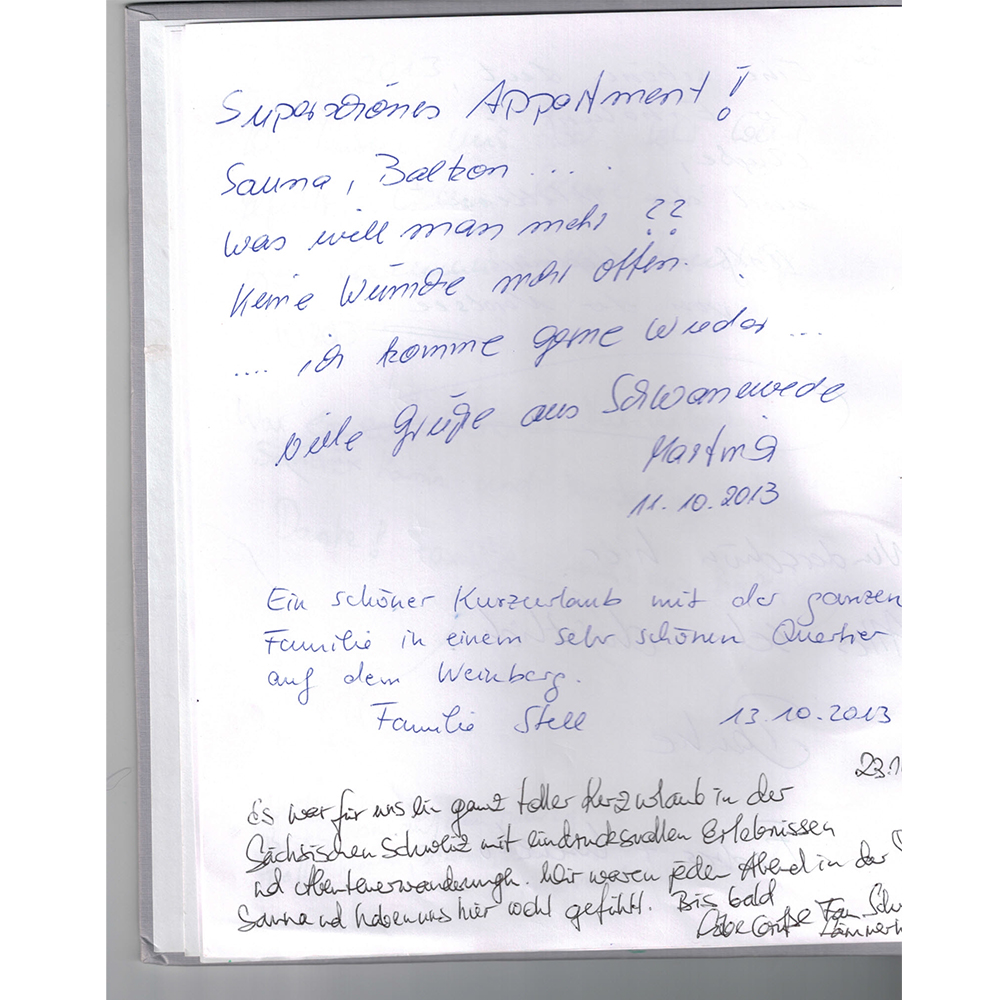 Superschönes Appartment!
Sauna, Balkon ....
was will man mehr ??
Keine Wünsche mehr offen.
.... ich komme gerne wieder ...
viele Grüße aus Schwanewede
Martina
11.10.2013
Ein schöner Kurzurlaub mit der ganzen
Familie in einem sehr schönen Quartier
auf dem Weinberg.
Familie Stell 13.10.2013
23.1
Es war für uns ein ganz toller Kurzurlaub in der
Sächsischen Schweiz mit eindrucksvollen Erlebnissen
und Abenteuerwanderungen. Wir waren jeden Abend in der
Sauna und haben uns hier wohl gefühlt. Bis bald
Liebe Grüße Fam. Schu